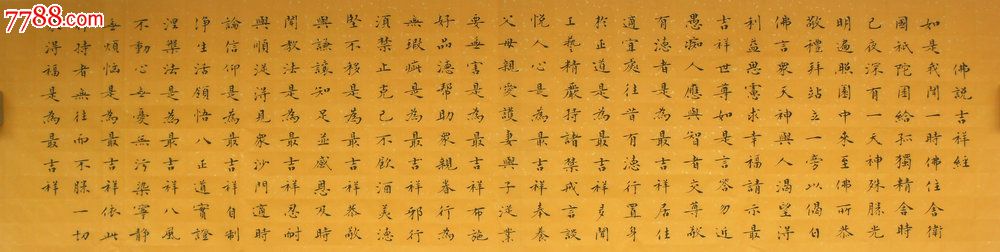 佛說吉祥經
如是我聞一時佛住舍衛
國祇陀園給孤獨精舍時
已夜深有一天神殊勝光
明遍照園中來至佛所恭
敬禮拜站立一旁以偈白
佛言眾天神與人渴望得
利益思憲求幸福請示最
吉祥世尊如是言答勿近
愚痴人應與智者交尊敬
有德者是為最吉祥居住
適宜處往昔有德行置身
於正道是為最吉祥多聞
工藝精嚴持諸禁戒言談
悅人心是為最吉祥奉養
父母親愛護妻與子從業
要無害是為最吉祥布施
好品德帮助眾親眷行為
無瑕疵是為最吉祥邪行
須禁止克己不飲酒美德
堅不移是為最吉祥恭敬
與謙讓知足並感恩及時
聞教法是為最吉祥忍耐
與順從得見眾沙門適時
論信仰是為最吉祥自制
淨生活領悟八正道實證
涅槃法是為最吉祥八風
不動心無憂無污染寧靜
無煩惱是為最吉祥依此
持者無往而不勝一切
得福是為最吉祥
7788.com